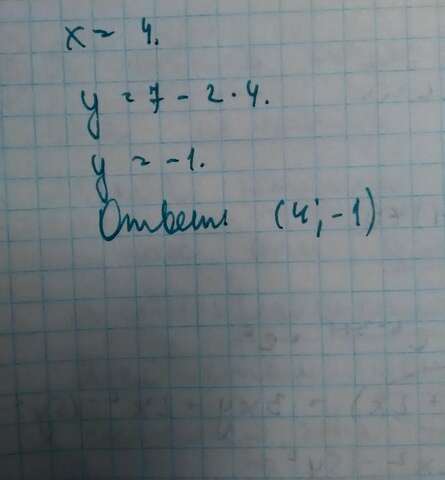 x = 4.
y = 7 - 2 · 4.
y = -1.
Ответ (4; -1)